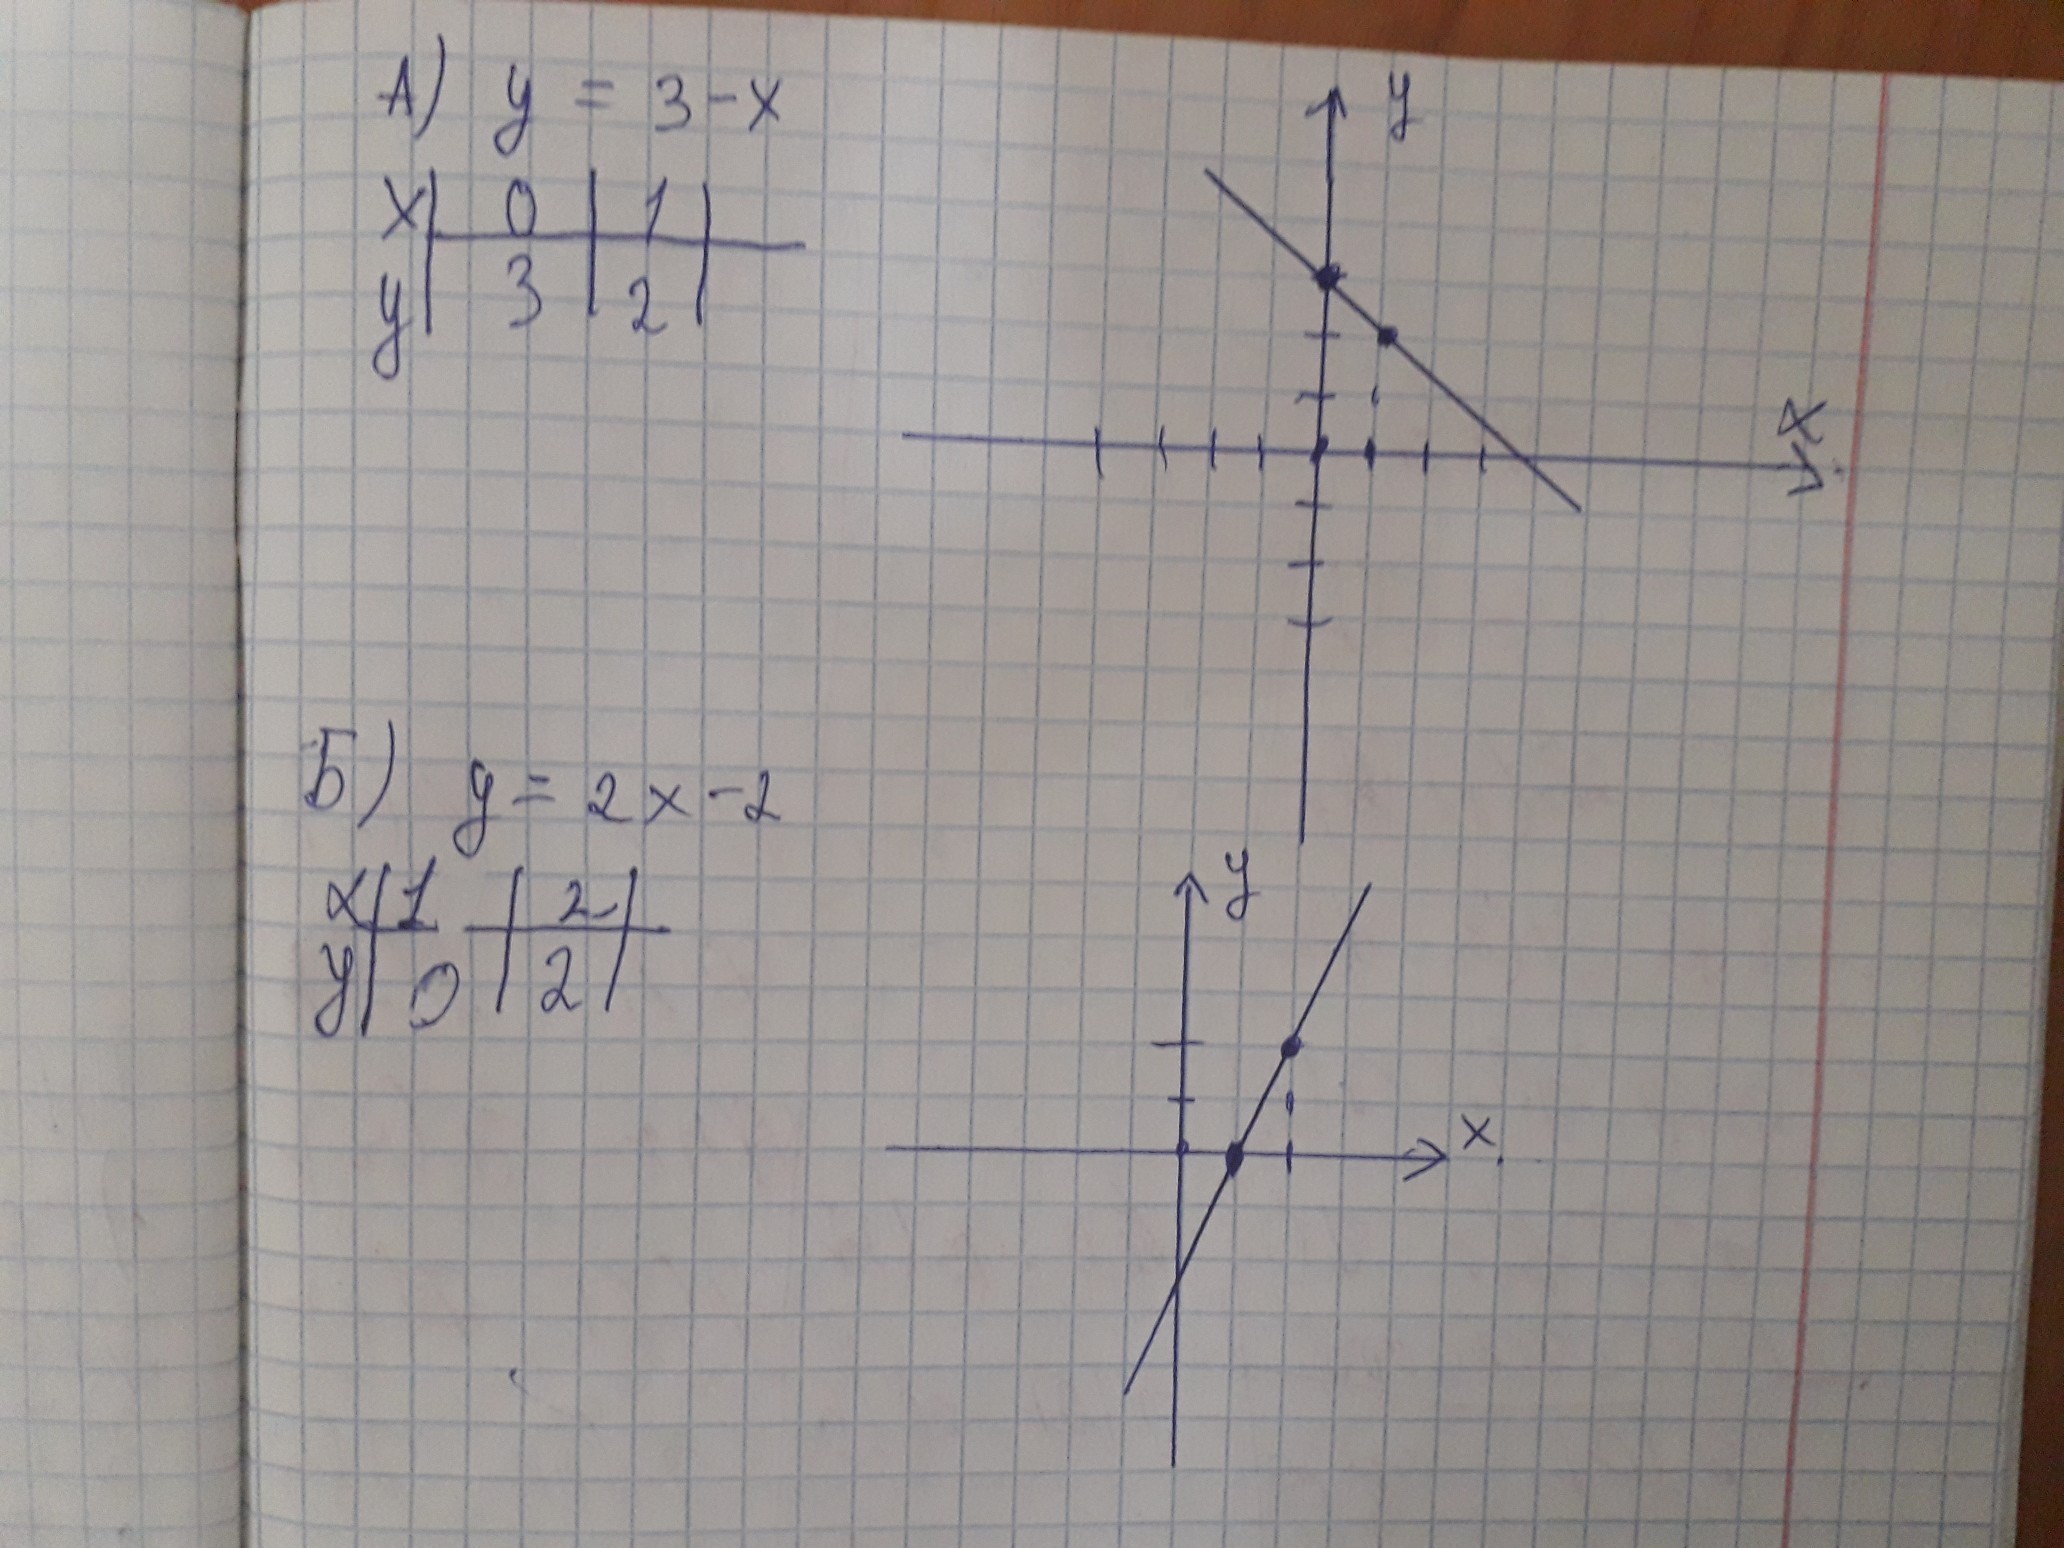 А) y = 3-x
x | 0 | 1 |
y | 3 | 2 |
y
x
Б) y = 2x-2
x | 1 | 2 |
y | 0 | 2 |
y
x